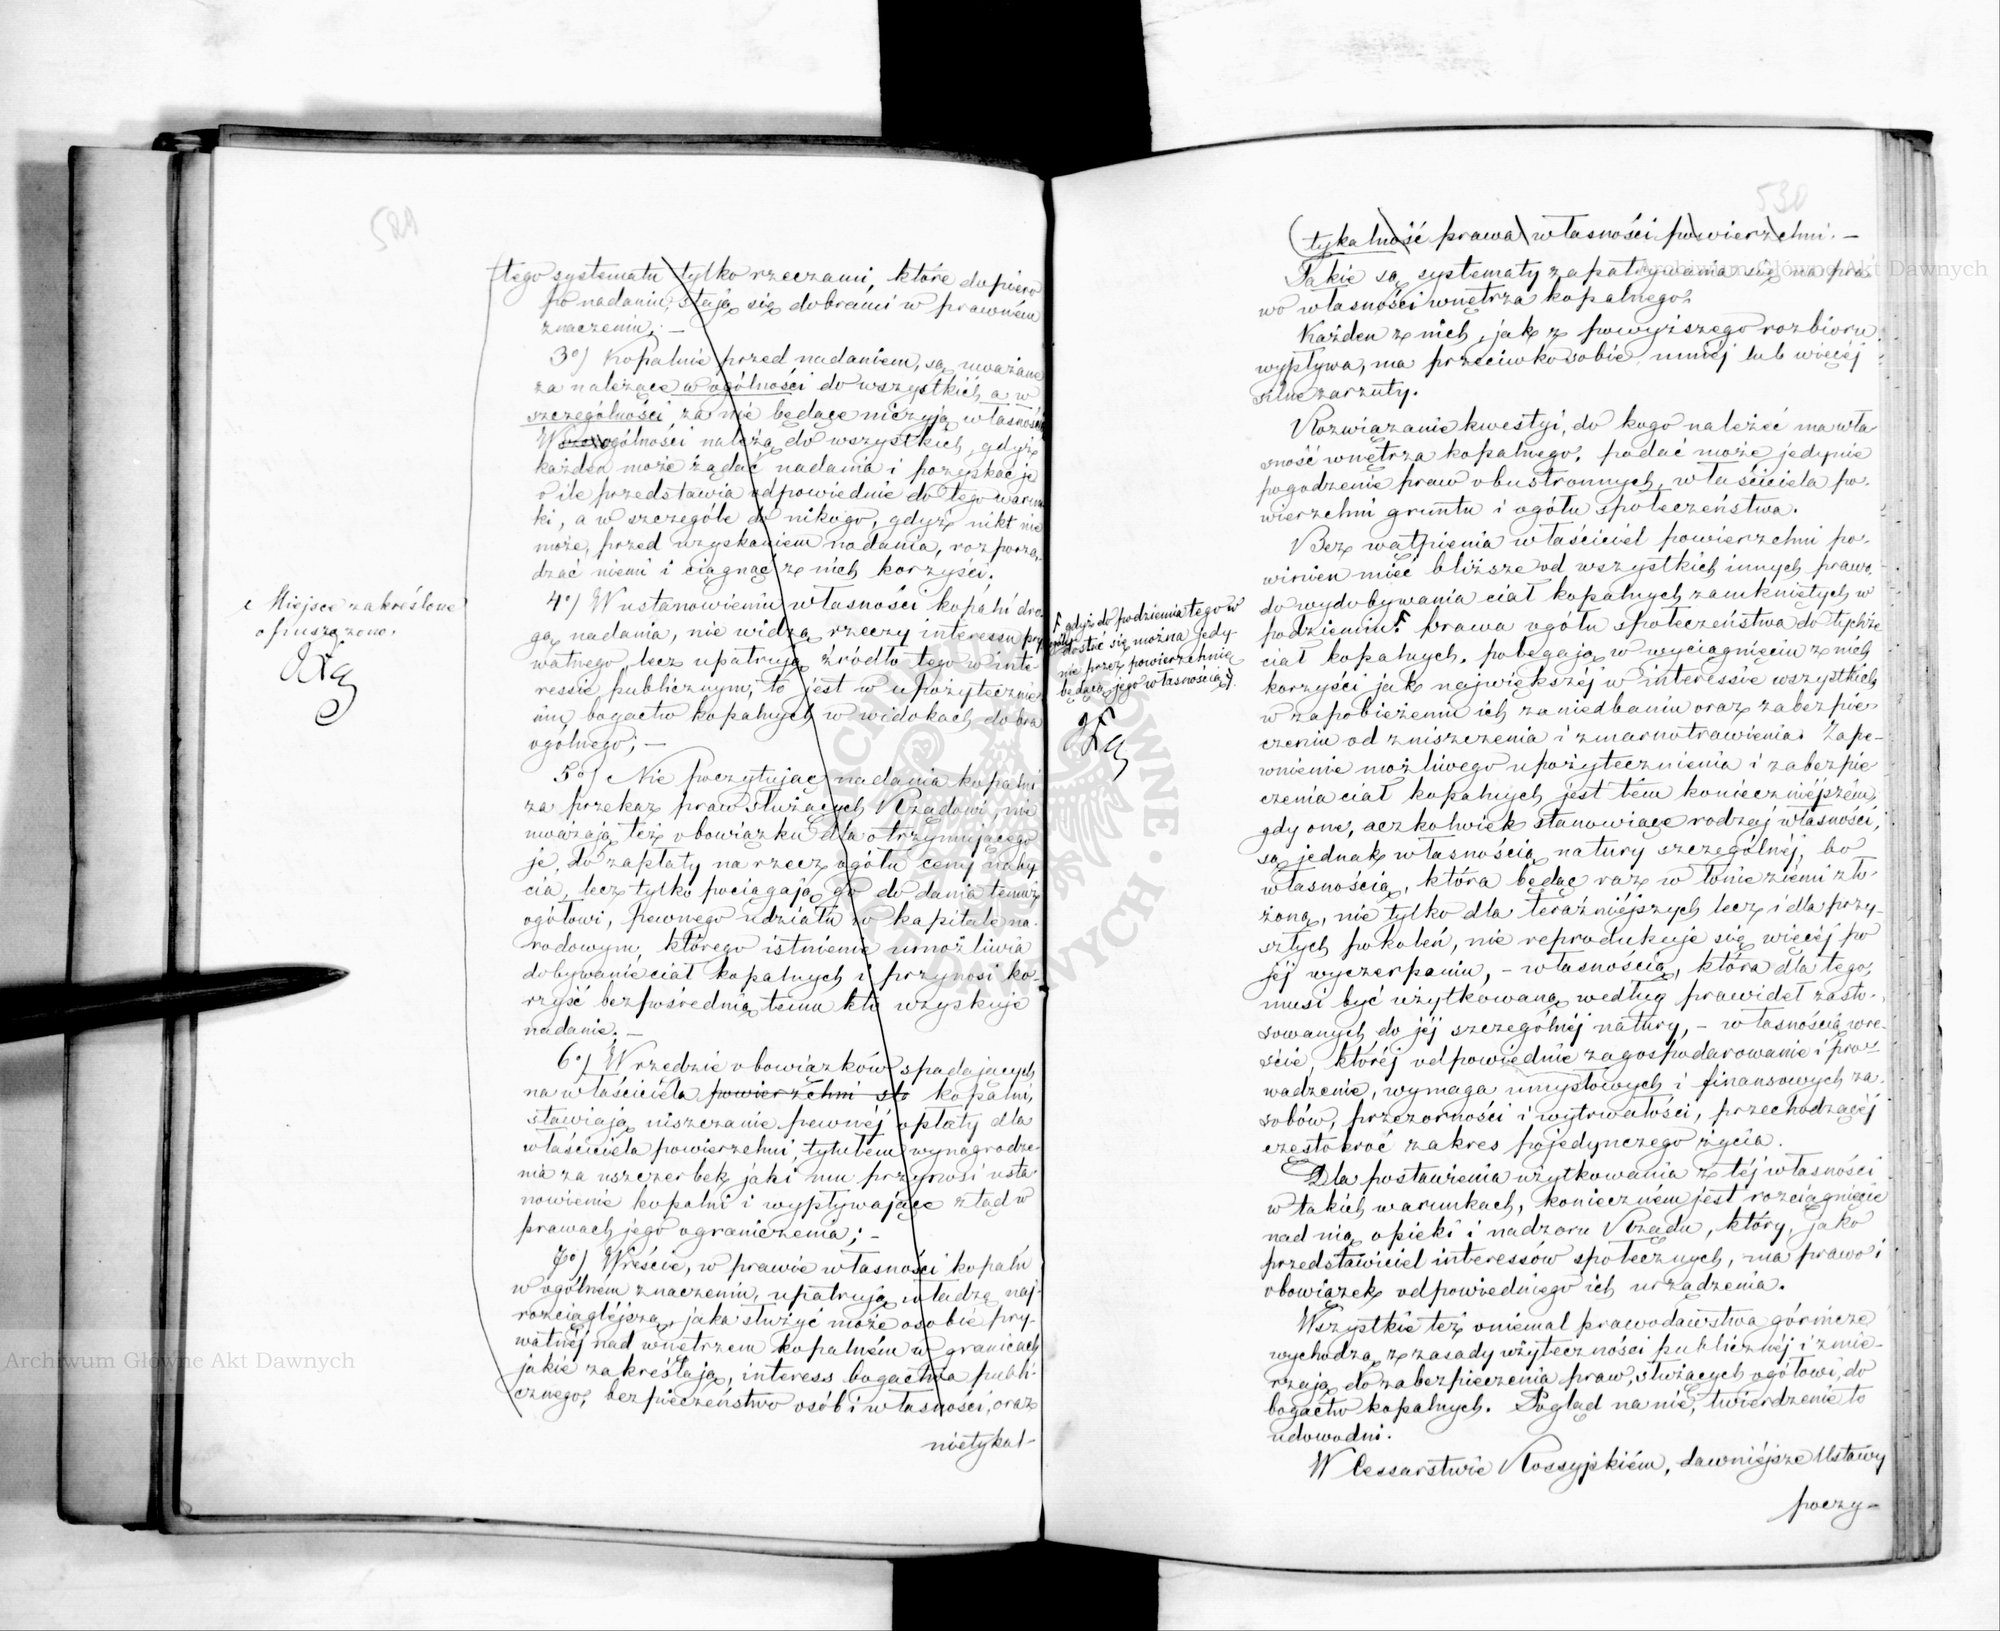 529
tego systematu tylko rzeczami, które dopiero
po nadaniu, stają się dobrami w prawném
znaczeniu; —
3o/ Kopalnie przed nadaniem, są uważane
za należące w ogólności do wszystkich, a w
szczególności za nie będące niczyją własnością
W ogólności należą do wszystkich, gdyż
każden może żądać nadania i pozyskać je
o ile przedstawia odpowiednie do tego warun-
ki, a w szczególe do nikogo, gdyż nikt nie
może, przed uzyskaniem nadania, rozporzą-
dzać niemi i ciągnąć z nich korzyści.
4o/ W ustanowieniu własności kopalń dro-
gą nadania, nie widzą rzeczy interessu pry-
watnego, lecz upatrują źródło tego w inte-
ressie publicznym, to jest w upożytecznie-
niu bogactw kopalnych w widokach dobra
ogólnego; —
5o/ Nie poczytując nadania kopalni
za przekaz praw służących Rządowi, nie
uważają też obowiązku dla otrzymującego
je, do zapłaty na rzecz ogółu ceny naby-
cia, lecz tylko pociągają go do dania temuż
ogółowi, pewnego udziału w kapitale na-
rodowym, którego istnienie umożliwia
dobywanie ciał kopalnych i przynosi ko-
rzyść bezpośrednią temu kto uzyskuje
nadanie. —
6o/ W rzędzie obowiązków spadających
na właściciela powierzchni sto kopalni,
stawiają uiszczanie pewnéj opłaty dla
właściciela powierzchni, tytułem wynagrodze-
nia za uszczerbek jaki mu przynosi usta-
nowienie kopalni i wypływające ztąd w
prawach jego ograniczenia; —
7o/ Wreście, w prawie własności kopalń
w ogólném znaczeniu, upatrują władzę naj-
rozciąglejszą, jaka służyć może osobie pry-
watnéj nad wnętrzem kopalném w granicach
jakie zakreślają, interess bogactwa publi-
cznego, bezpieczeństwo osób i własności, oraz
nietykal-
Miejsce zakreślone
opuszczono.
530
tykalność prawa własności powierzchni. —
Takie są systematy zapatrywania się na pra-
wo własności wnętrza kopalnego.
Każden z nich, jak z powyższego rozbioru
wypływa, ma przeciwko sobie mniéj lub więcéj
silne zarzuty.
Rozwiązanie kwestyi, do kogo należeć ma wła-
sność wnętrza kopalnego, podać może jedynie
pogodzenie praw obustronnych, właściciela po-
wierzchni gruntu i ogółu społeczeństwa.
Bez wątpienia właściciel powierzchni po-
winien mieć bliższe od wszystkich innych prawo
do wydobywania ciał kopalnych zamkniętych w
podziemiu. Prawa ogółu społeczeństwa do tychże
ciał kopalnych, polegają w wyciągnięciu z nich
korzyści jak największéj w interessie wszystkich
w zapobieżeniu ich zaniedbaniu oraz zabezpie-
czeniu od zniszczenia i zmarnotrawienia. Zape-
wnienie możliwego upożytecznienia i zabezpie-
czenia ciał kopalnych jest tém konieczniejszém,
gdy one, aczkolwiek stanowiące rodzaj własności,
są jednak własnością natury szczególnéj, bo
własnością, która będąc raz w łonie ziemi zło-
żoną, nie tylko dla teraźniejszych lecz i dla przy-
szłych pokoleń, nie reprodukuje się więcéj po
jéj wyczerpaniu, – własnością, która dla tego,
musi być użytkowaną według prawideł zasto-
sowanych do jéj szczególnéj natury, – własnością wre-
ście, któréj odpowiednie zagospodarowanie i pro-
wadzenie, wymaga umysłowych i finansowych za-
sobów, przezorności i wytrwałości, przechodzącéj
częstokroć zakres pojedynczego życia.
Dla postawienia użytkowania z téj własności
w takich warunkach, koniecznem jest rozciągnięcie
nad nią opieki i nadzoru Rządu, który, jako
przedstawiciel interessów społecznych, ma prawo i
obowiązek odpowiedniego ich urządzenia.
Wszystkie też oniemal prawodawstwa górnicze
wychodzą z zasady użyteczności publicznéj i zmie-
rzają do zabezpieczenia praw, służących ogółowi, do
bogactw kopalnych. Pogląd na nie, twierdzenie to
udowodni.
W Cessarstwie Rossyjskiém, dawniejsze Ustawy
poczy-
gdyż do podziemia tego w
dostać się można jedy-
nie przez powierzchnię
będącą jego własnością
Archiwum Główne Akt Dawnych
Archiwum Główne Akt Dawnych